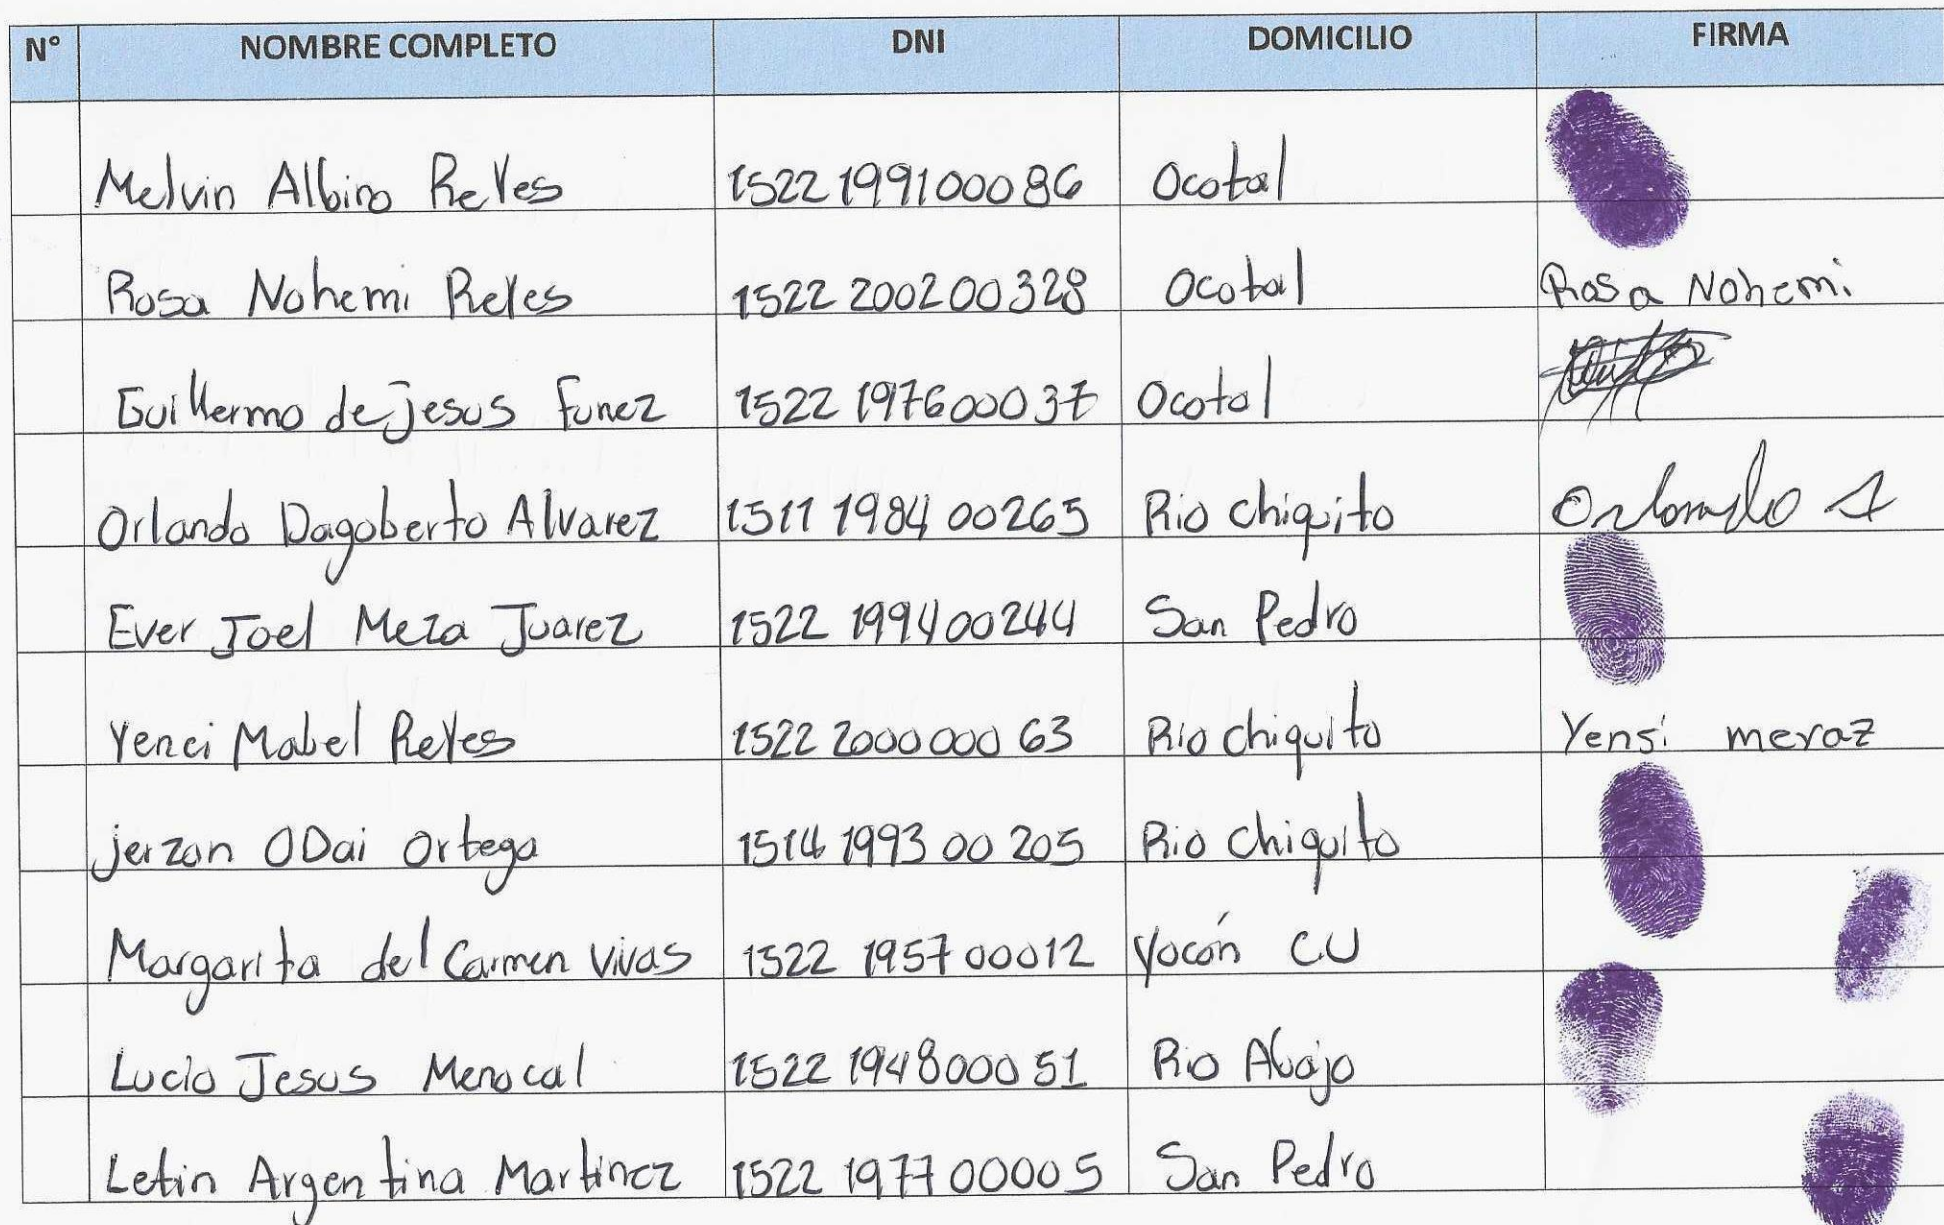 N° NOMBRE COMPLETO DNI DOMICILIO FIRMA
Melvin Albino Reyes 1522 1991 00086 Ocotal
Rosa Nohemi Reyes 1522 2002 00328 Ocotal Rosa Nohemi
Guillermo de jesus funez 1522 1976 00037 Ocotal
Orlando Dagoberto Alvarez 1511 1984 00265 Rio chiquito Orlando A
Ever Joel Meza Juarez 1522 1994 00244 San Pedro
Yenci Mabel Reyes 1522 2000 000 63 Rio chiquito Yensi meraz
jerzon ODai Ortega 1514 1993 00 205 Rio Chiquito
Margarita del Carmen Vivas 1522 1957 00012 Yocón CU
Lucio Jesus Menocal 1522 1948 000 51 Rio Abajo
Letin Argentina Martinez 1522 1977 00005 San Pedro